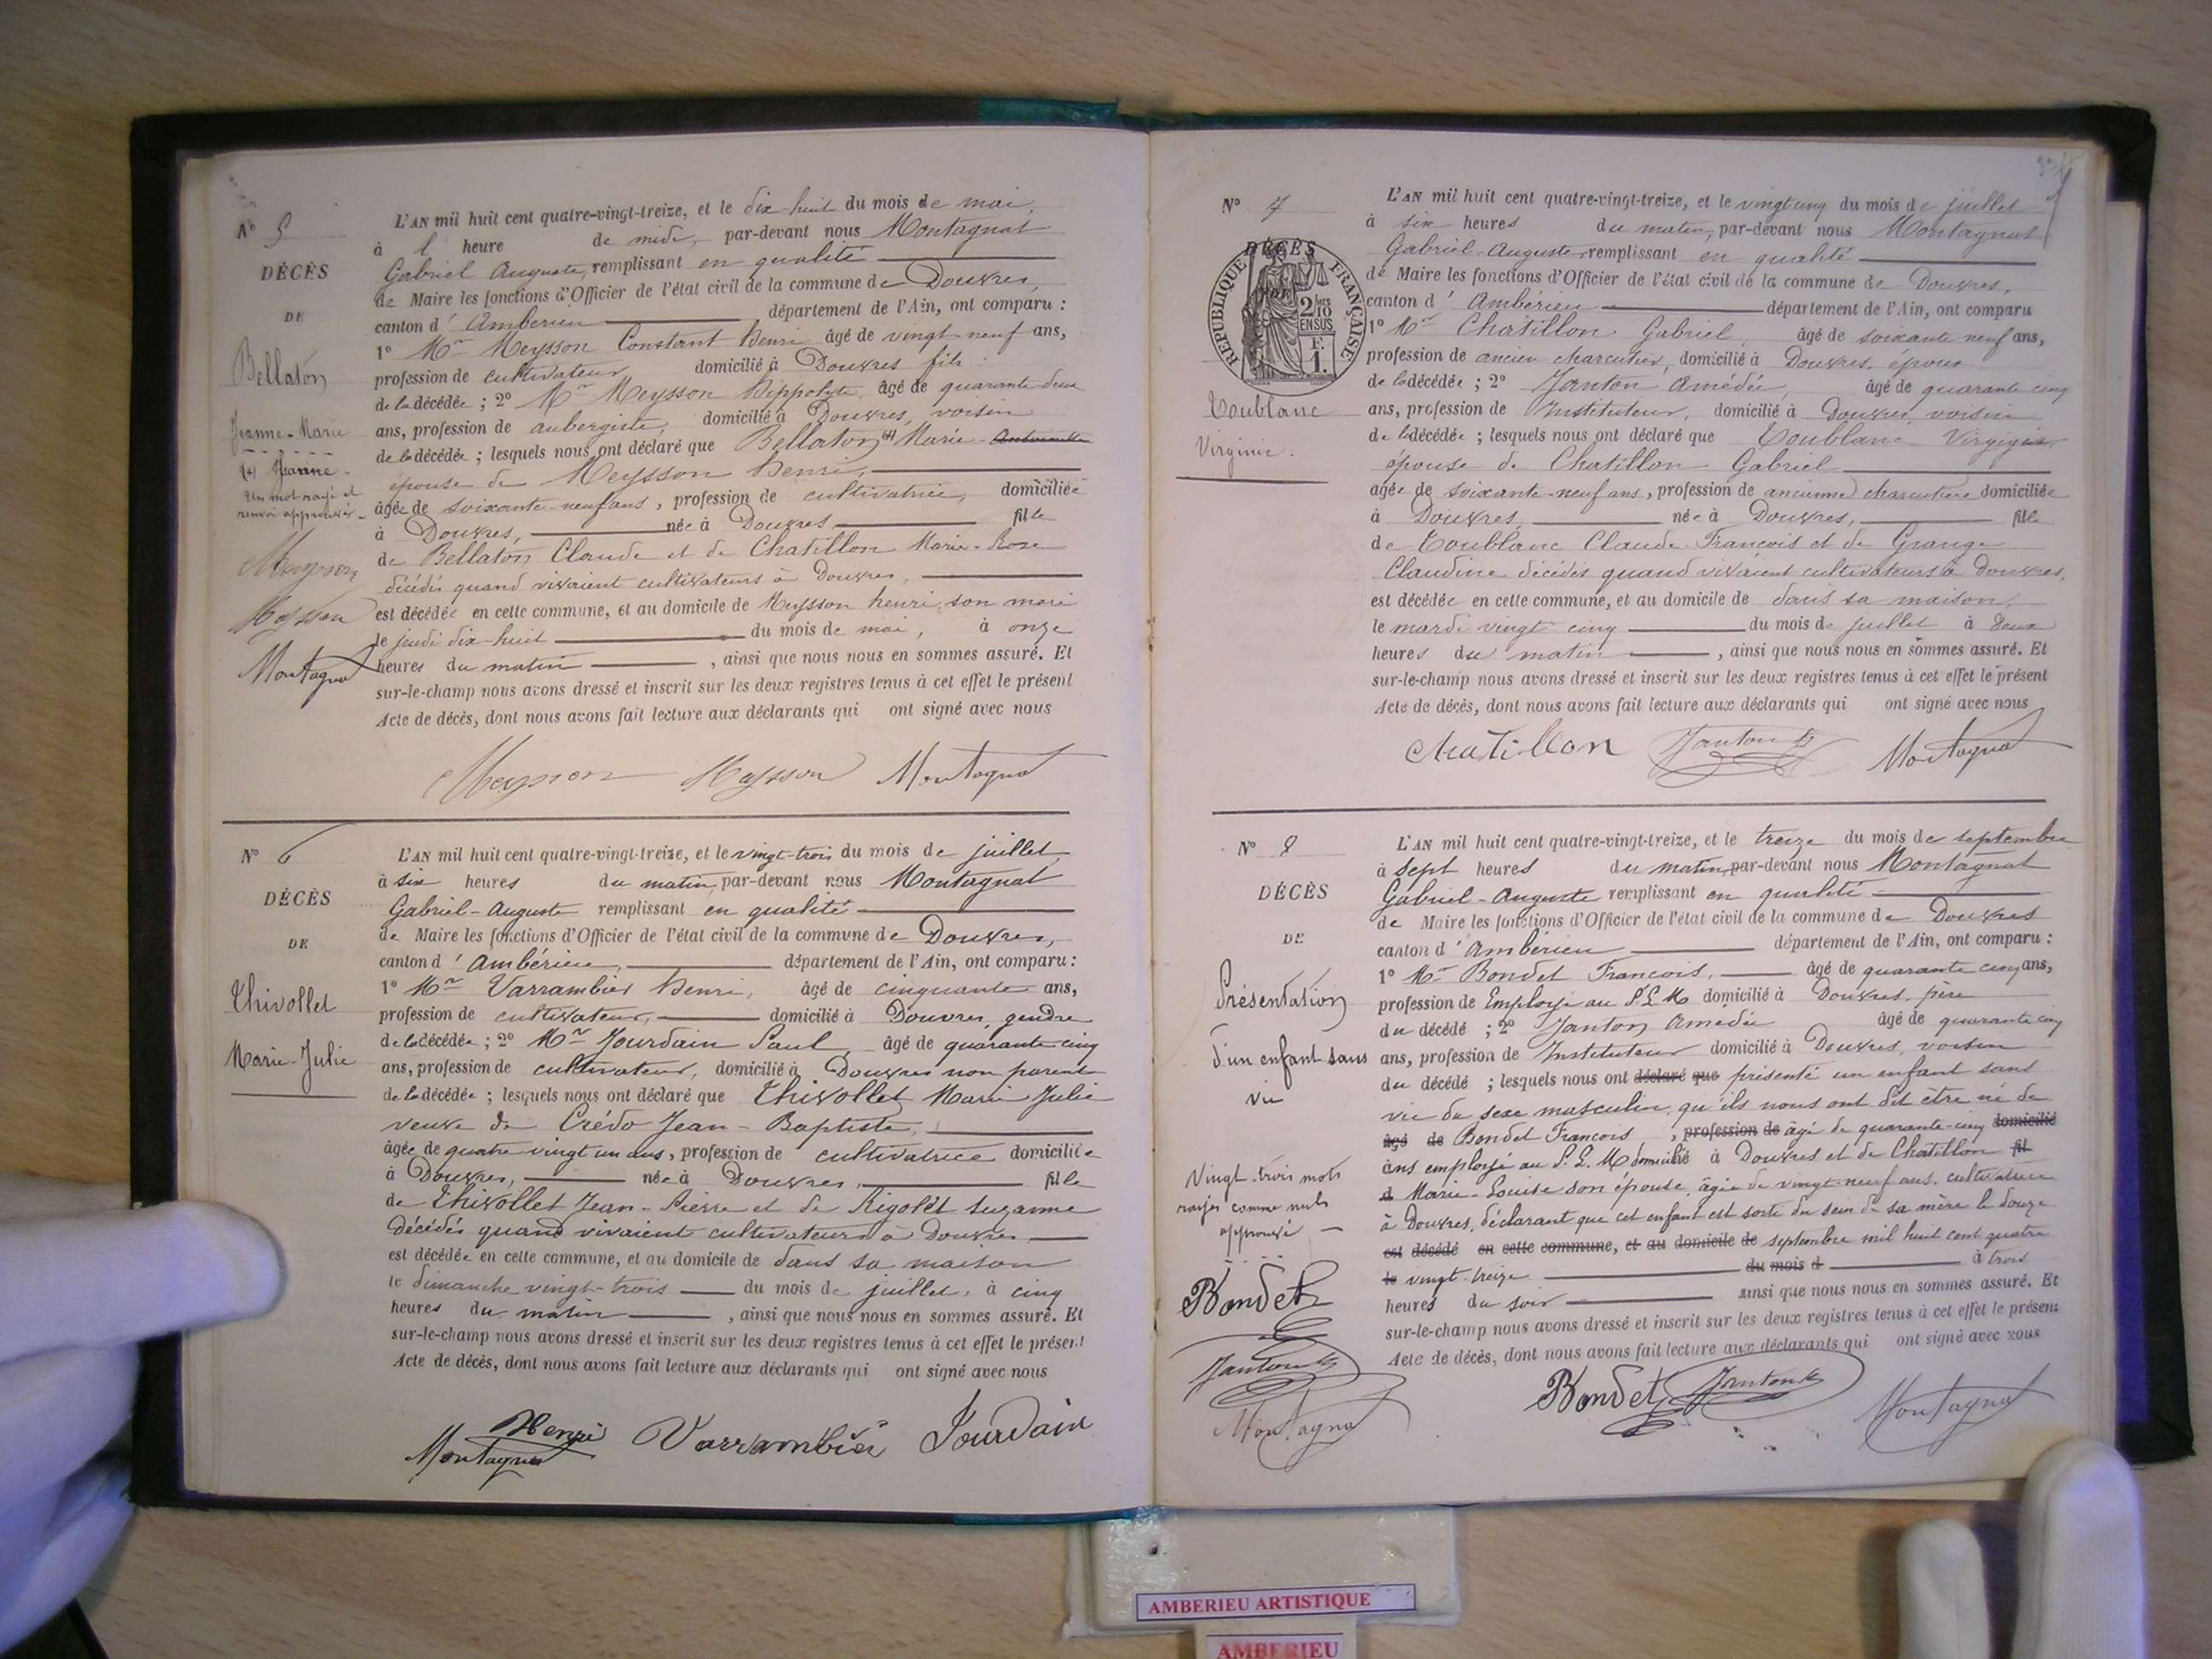 N° 5
DÉCÈS
DE
Bellaton
Jeanne-Marie
(+) Jeanne
Un mot rayé et
renvoi approuvés
Meysson
Meysson
Montagnat
L'AN mil huit cent quatre-vingt-treize, et le dix-huit du mois de mai,
à 1 heure de midi, par-devant nous Montagnat
Gabriel Auguste, remplissant en qualité
de Maire les fonctions d'Officier de l'état civil de la commune de Douvres,
canton d'Ambérieu département de l'Ain, ont comparu :
1° Mr Meysson Constant Henri âgé de vingt-neuf ans,
profession de cultivateur domicilié à Douvres fils
de la décédée ; 2° Mr Meysson Hippolyte âgé de quarante-deux
ans, profession de aubergiste, domicilié à Douvres, voisin
de la décédée ; lesquels nous ont déclaré que Bellaton (+) Marie Antoinette
épouse de Meysson Henri,
âgée de soixante-neuf ans, profession de cultivatrice, domiciliée
à Douvres, née à Douvres, fille
de Bellaton Claude et de Chatillon Marie-Rose
décédés quand vivaient cultivateurs à Douvres,
est décédée en cette commune, et au domicile de Meysson henri, son mari
le jeudi dix-huit du mois de mai, à onze
heures du matin, ainsi que nous nous en sommes assuré. Et
sur-le-champ nous avons dressé et inscrit sur les deux registres tenus à cet effet le présent
Acte de décès, dont nous avons fait lecture aux déclarants qui ont signé avec nous
Meysson Meysson Montagnat
N° 6
DÉCÈS
DE
Thivollet
Marie-Julie
L'AN mil huit cent quatre-vingt-treize, et le vingt-trois du mois de juillet
à six heures du matin, par-devant nous Montagnat
Gabriel-Auguste remplissant en qualité
de Maire les fonctions d'Officier de l'état civil de la commune de Douvres,
canton d'Ambérieu, département de l'Ain, ont comparu :
1° Mr Varrambier Henri, âgé de cinquante ans,
profession de cultivateur, domicilié à Douvres, gendre
de la décédée ; 2° Mr Jourdain Paul âgé de quarante-cinq
ans, profession de cultivateur, domicilié à Douvres non parent
de la décédée ; lesquels nous ont déclaré que Thivollet Marie Julie
veuve de Crédo Jean-Baptiste,
âgée de quatre vingt un ans, profession de cultivatrice domiciliée
à Douvres, née à Douvres, fille
de Thivollet Jean-Pierre et de Rigollet Suzanne
décédés quand vivaient cultivateurs à Douvres
est décédée en cette commune, et au domicile de dans sa maison
le dimanche vingt-trois du mois de juillet, à cinq
heures du matin, ainsi que nous nous en sommes assuré. Et
sur-le-champ nous avons dressé et inscrit sur les deux registres tenus à cet effet le présent
Acte de décès, dont nous avons fait lecture aux déclarants qui ont signé avec nous
Henri Varrambier Jourdain
Montagnat
N° 7
DÉCÈS
RÉPUBLIQUE FRANÇAISE
2/10 EN SUS
F. 1.
Toublanc
Virginie.
L'AN mil huit cent quatre-vingt-treize, et le vingt cinq du mois de juillet
à six heures du matin, par-devant nous Montagnat
Gabriel-Auguste remplissant en qualité
de Maire les fonctions d'Officier de l'état civil de la commune de Douvres,
canton d'Ambérieu département de l'Ain, ont comparu
1° Mr Chatillon Gabriel, âgé de soixante neuf ans,
profession de ancien charcutier, domicilié à Douvres, époux
de la décédée ; 2° Janton Amédée, âgé de quarante cinq
ans, profession de Instituteur, domicilié à Douvres, voisin
de la décédée ; lesquels nous ont déclaré que Toublanc Virginie
épouse de Chatillon Gabriel
âgée de soixante-neuf ans, profession de ancienne charcutière domiciliée
à Douvres, née à Douvres, fille
de Toublanc Claude-François et de Grange
Claudine décédés quand vivaient cultivateurs à Douvres,
est décédée en cette commune, et au domicile de dans sa maison,
le mardi vingt cinq du mois de juillet à deux
heures du matin, ainsi que nous nous en sommes assuré. Et
sur-le-champ nous avons dressé et inscrit sur les deux registres tenus à cet effet le présent
Acte de décès, dont nous avons fait lecture aux déclarants qui ont signé avec nous
Chatillon Janton Montagnat
N° 8
DÉCÈS
DE
Présentation
d'un enfant sans
vie
Vingt-trois mots
rayés comme nuls
approuvé
Bondet
Janton
Montagnat
L'AN mil huit cent quatre-vingt-treize, et le treize du mois de septembre
à sept heures du matin, par-devant nous Montagnat
Gabriel-Auguste remplissant en qualité
de Maire les fonctions d'Officier de l'état civil de la commune de Douvres
canton d'Ambérieu département de l'Ain, ont comparu :
1° Mr Bondet François, âgé de quarante cinq ans,
profession de Employé au P.L.M domicilié à Douvres, père
du décédé ; 2° Janton Amédée âgé de quarante cinq
ans, profession de Instituteur domicilié à Douvres, voisin
du décédé ; lesquels nous ont déclaré que présenté un enfant sans
vie du sexe masculin, qu'ils nous ont dit être né de
âgé de Bondet François, profession de âgé de quarante-cinq domicilié
ans employé au P.L.M domicilié à Douvres et de Chatillon fil
d Marie-Louise son épouse, âgée de vingt-neuf ans, cultivatrice
à Douvres, déclarant que cet enfant est sorti du sein de sa mère le douze
est décédé en cette commune, et au domicile de septembre mil huit cent quatre
le vingt-treize du mois d à trois
heures du soir ainsi que nous nous en sommes assuré. Et
sur-le-champ nous avons dressé et inscrit sur les deux registres tenus à cet effet le présent
Acte de décès, dont nous avons fait lecture aux déclarants qui ont signé avec nous
Bondet Janton Montagnat
AMBERIEU ARTISTIQUE
AMBERIEU